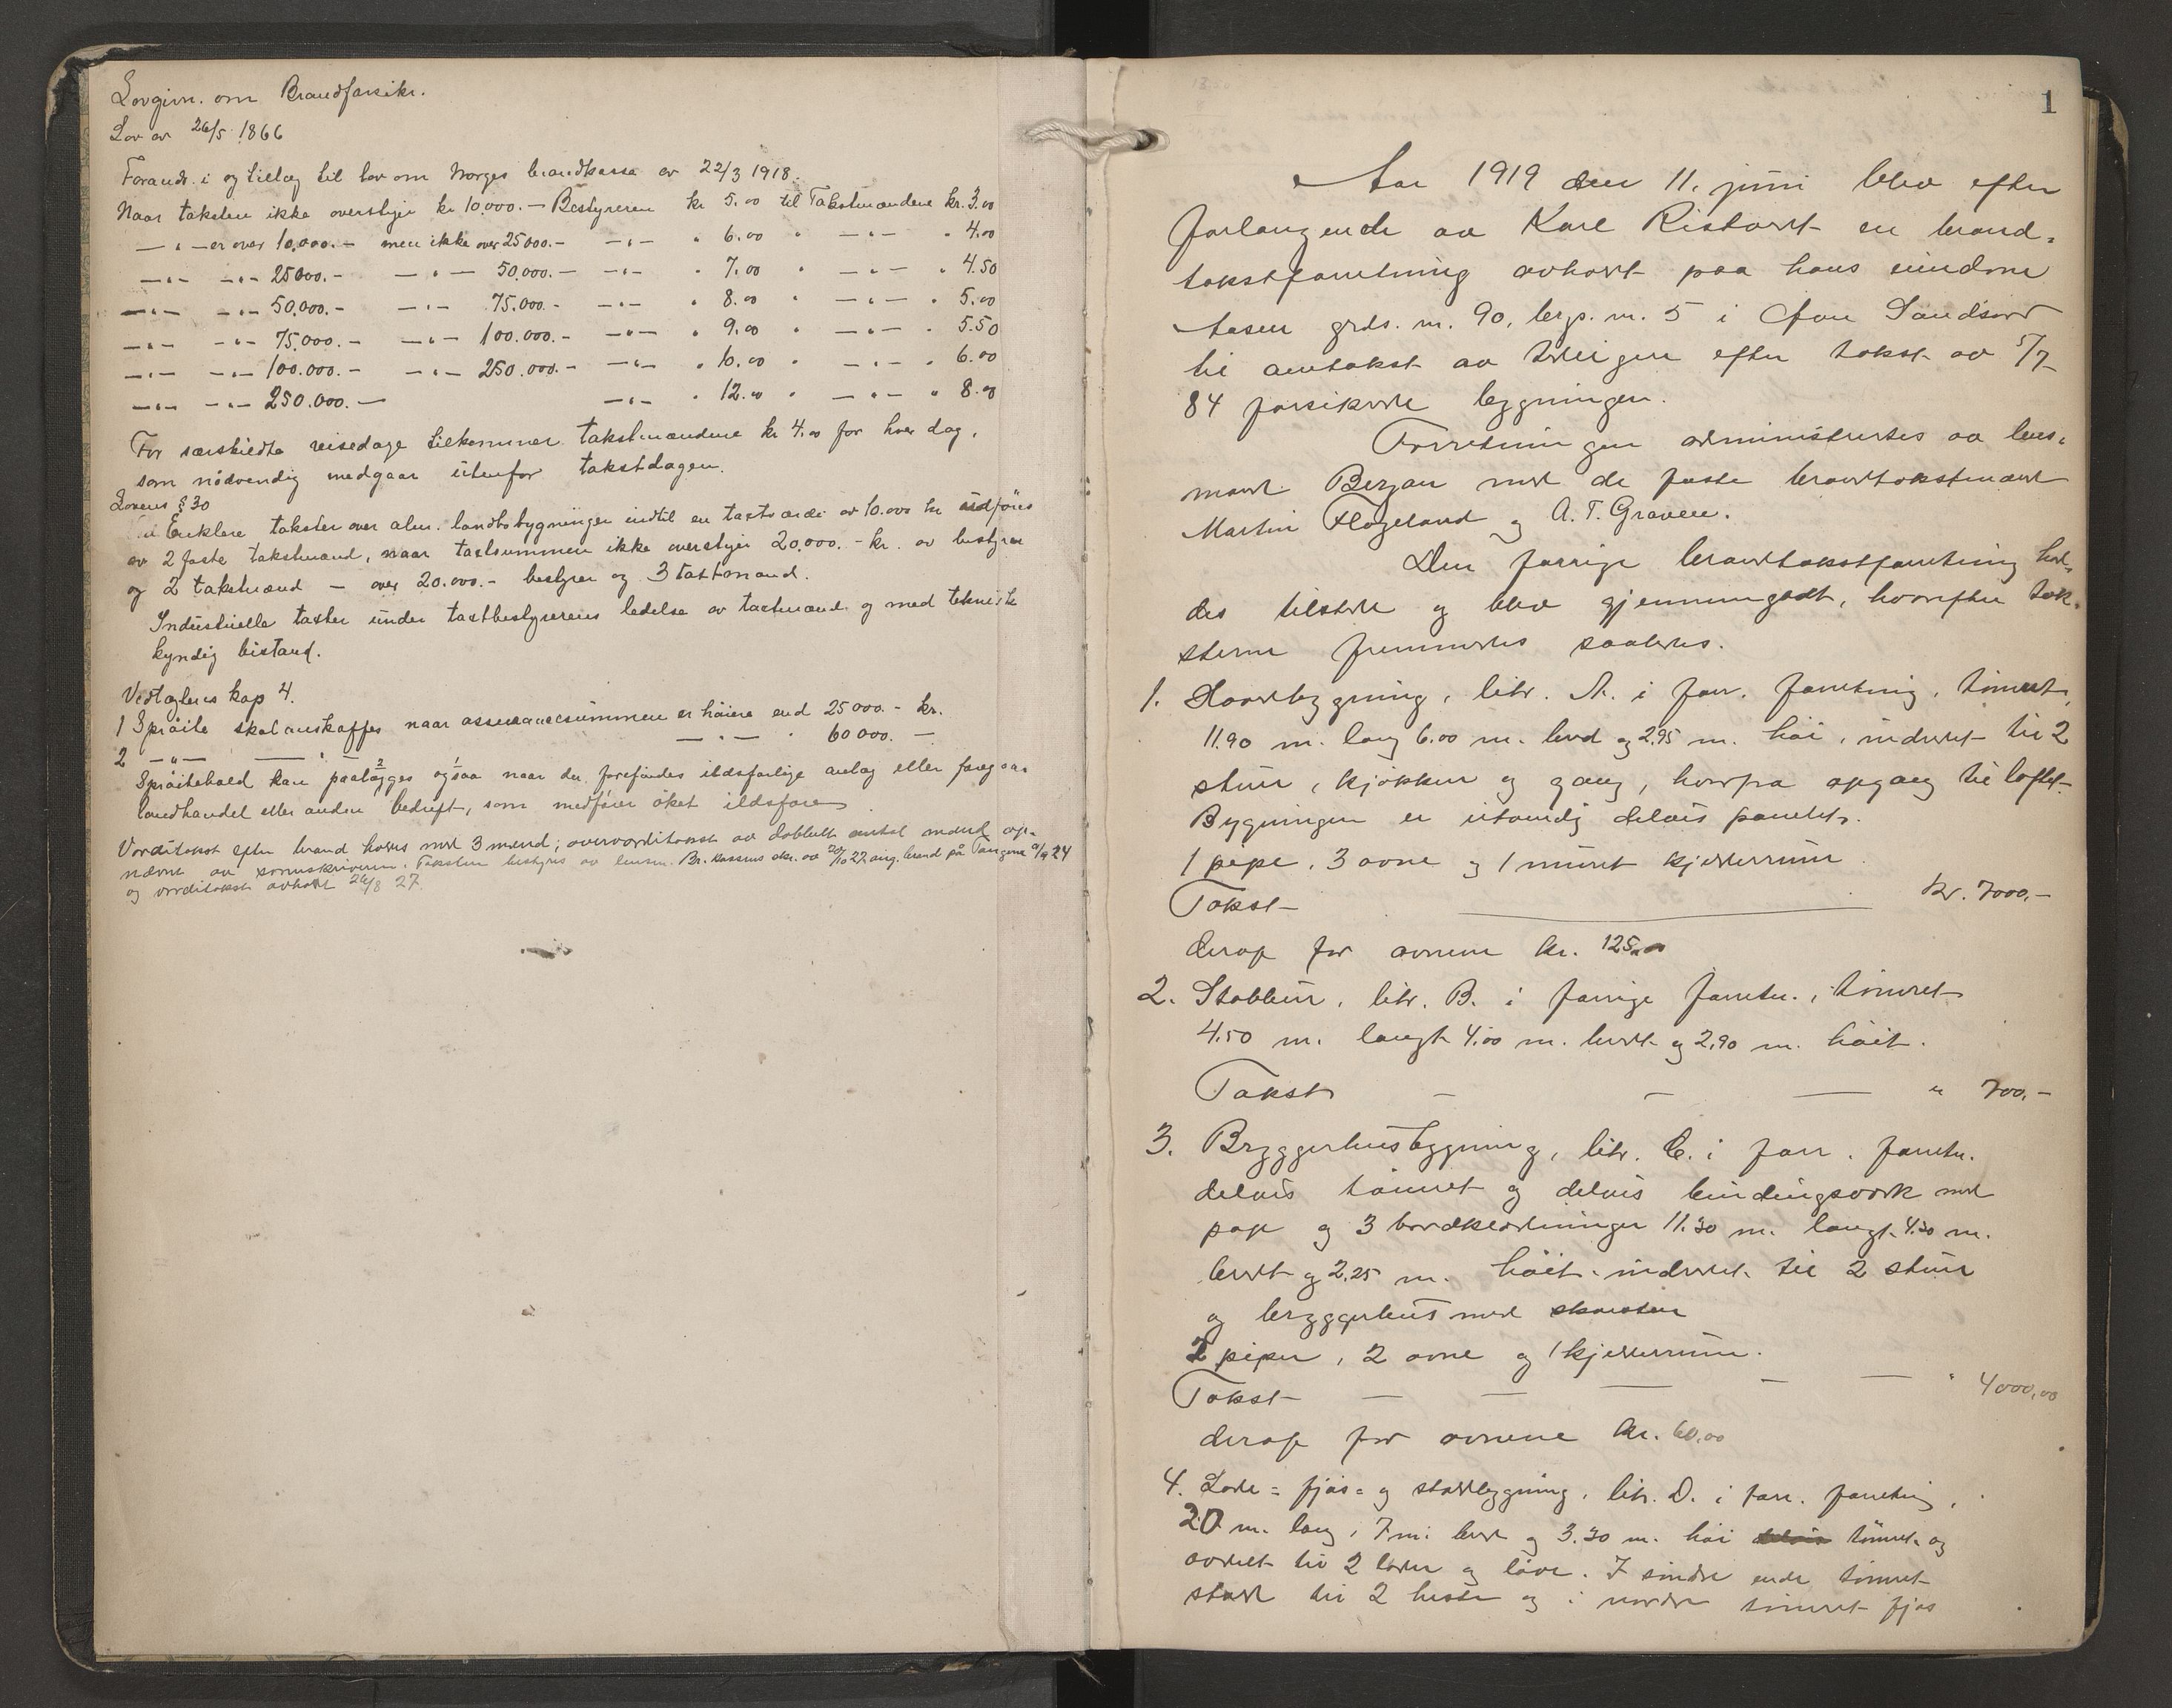 Lovgivn. om Brandforsikr.
Lov av 26/5 1866
Forandr. i og tillæg til lov om Norges brandkasse av 22/3 1918.
Naar taksten ikke overstiger kr 10.000.- Bestyreren kr 5.00 til Takstmændene kr. 3.00
—„— er over 10.000.- men ikke over 25000.- —„— „ 6.00 „ —„— „ 4.00
—„— —„— 25000.- —„— 50.000.- —„— „ 7.00 „ —„— „ 4.50
—„— —„— 50.000.- —„— 75.000.- —„— „ 8.00 „ —„— „ 5.00
—„— —„— 75.000.- —„— 100.000.- —„— „ 9.00 „ —„— „ 5.50
—„— —„— 100.000.- —„— 250.000.- —„— „ 10.00 „ —„— „ 6.00
—„— —„— 250.000.— —„— „ 12.00 „ —„— „ 8.00
For særskildte reisedage tilkommer takstmændene kr 4.00 for hver dag,
som nödvendig medgaar utenfor takstdagen.
Lovens § 30
Enklere takster over alm. landbobygninger indtil en taxtværdi av 10.000 kr udföres
av 2 faste takstmænd, naar taxtsummen ikke overstiger 20.000.- kr. av bestyrer
og 2 takstmænd — over 20.000.- bestyrer og 3 taxtmænd.
Industrielle taxter under taxtbestyrerens ledelse av taxtmænd og med teknisk
kyndig bistand.
Vedtægtens kap 4.
1 Spröite skal anskaffes naar assurancesummen er höiere end 25000.- kr.
2 —„— —„— —„— „ 60000.—
Spröitehold kan paalægges ogsaa naar der forefindes ildsfarlige anlæg eller foregaar
landhandel eller anden bedrift, som medförer öket ildsfare.
Værditakst efter brand holdes med 3 mænd; oververditakst av dobbelt antal mænd op-
nævnt av sorenskriveren. Taksten bestyres av lensm. Br. kassens skr. av 20/10 22 ang. brand på Tangene 9/9 24
og værditakst avholdt 26/8 27.
1
Aar 1919 den 11. juni blev efter
forlangende av Karl Ristovt en brand-
takstforretning avholdt paa hans eiendom
Aasen grds. nr. 90, brgs. nr. 5 i Övre Sandsvær
til omtakst av tidligere efter takst av 5/7
84 forsikrede bygninger.
Forretningen administrertes av lens-
mand Berzau med de faste brandtakstmænd
Martin Flogeland og A. T. Graven.
Den forrige brandtakstforretning hol-
des tilstede og blev gjennemgaat, hvorefter tak-
sterne fremmedes saaledes.
1. Hovedbygning, litr. A. i forr. forretning, tömret,
11.90 m. lang 6.00 m. bred og 2.95 m. höi, indredet til 2
stuer, kjökken og gang, hvorfra opgang til loftet.
Bygningen er utvendig delvis panelet.
1 pipe, 3 ovne og 1 muret kjelderrum.
Takst kr. 7000.-
derav for ovnene kr. 125.00
2. Stabbur, litr. B. i forrige forretn., tömret
4.50 m. langt 4.00 m. bredt og 2.90 m. höit.
Takst — — — „ 700.-
3. Bryggerhusbygning, litr. C. i forr. forretn.
delvis tömret og delvis bindingsverk med
pap og 3 bordklædninger 11.30 m. langt 4.30 m.
bredt og 2.25 m. höit. indredet til 2 stuer
og bryggerhus med skorsten
2 piper, 2 ovne og 1 kjelderrum.
Takst — — — — — „ 4000,00
derav for ovnene kr. 60.00
4. Lade- fjös- og staldbygning, litr. D. i forr. forretning,
20 m. lang, 7 m. bred og 3.30 m. höi delvis tömret og
avdelt til 2 lader og låve. I söndre ende tömret
stald til 2 heste og i nordre tömret fjös